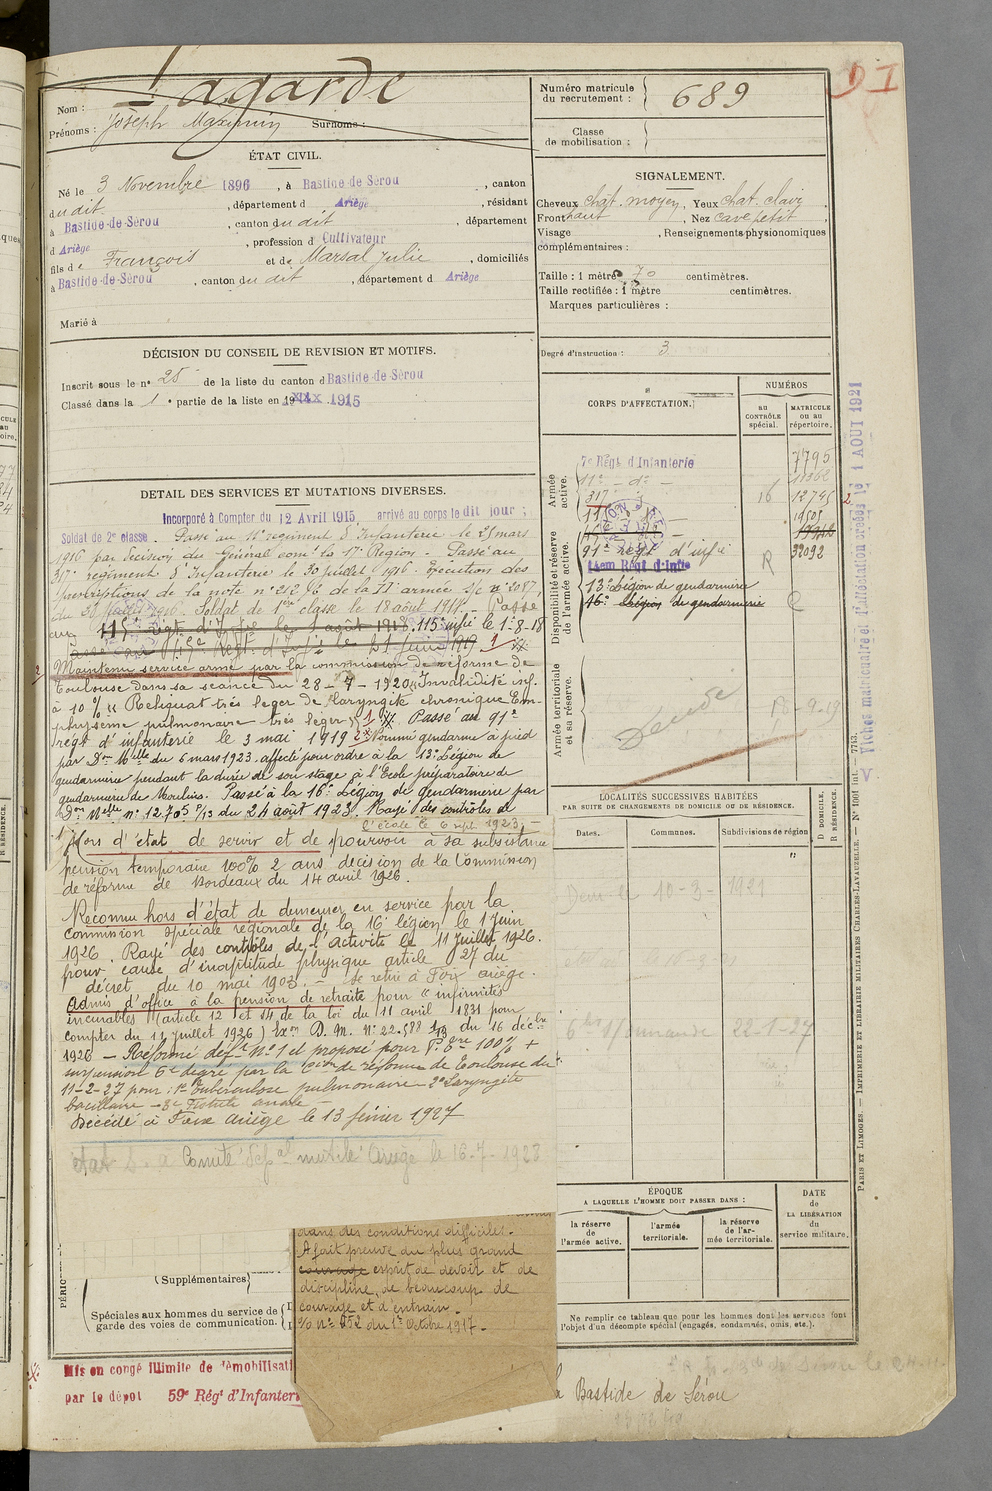 D I
Lagarde
Nom :
Prénoms : Joseph Maximin Surnoms :
Numéro matricule
du recrutement : 689
Classe
de mobilisation :
ÉTAT CIVIL.
Né le 3 Novembre 1896, à Bastide-de-Sérou, canton
du dit, département d Ariège, résidant
à Bastide-de-Sérou, canton du dit, département
d Ariège, profession d Cultivateur
fils de François et de Marsal Julie, domiciliés
à Bastide-de-Sérou, canton du dit, département d Ariège
Marié à
SIGNALEMENT.
Cheveux chât. moyen, Yeux chat. clair,
Front haut, Nez cave petit,
Visage, Renseignements physionomiques
complémentaires :
Taille : 1 mètre 70 centimètres.
Taille rectifiée : 1 mètre centimètres.
Marques particulières :
Degré d'instruction : 3
DÉCISION DU CONSEIL DE REVISION ET MOTIFS.
Inscrit sous le n° 25 de la liste du canton d Bastide-de-Sérou
Classé dans la 1e partie de la liste en 1915
CORPS D'AFFECTATION.
NUMÉROS
AU CONTRÔLE spécial.
MATRICULE OU AU répertoire.
Armée active.
7e Régt d'Infanterie 7795
11e - do -
317e 16 12795 2
Disponibilité et réserve de l'armée active.
91e Regt d'infie R 32092
144em Régt d'Infie
13e Légion de gendarmerie
16e Légion de gendarmerie
Armée territoriale et sa réserve.
DÉTAIL DES SERVICES ET MUTATIONS DIVERSES.
Incorporé à Compter du 12 Avril 1915, arrivé au corps le dit jour ;
Soldat de 2e classe. Passé au 11e regiment d'Infanterie le 25 mars
1916 par decision du Général comt la 17e Région - Passé au
317e regiment d'Infanterie le 30 juillet 1916. Execution des
prescriptions de la note n° 212 96 de la IIe armée S/c n° 2087,
du 31 juillet 1916. Soldat de 1ere classe le 18 août 1917. - Passé
au 115e Rgt. d'Infie le 1 août 1918. 115e infie le 1-8-18
passé au 14e Regt d'Infie le 21 Juin 1919
Maintenu service armé par la commission de réforme de
Toulouse dans sa séance du 28-7-1920 "Invalidité inf.
à 10 % "Reliquat très leger de laryngite chronique Em-
physème pulmonaire très leger" Passé au 91e
régt d'infanterie le 3 mai 1919 Nommé gendarme à pied
par Don Mielle du 6 mars 1923. affecté pour ordre à la 13e Légion de
gendarmerie pendant la durée de son stage à l'Ecole préparatoire de
gendarmerie de Moulins. Passé à la 16e Légion de gendarmerie par
Don Mielle n° 12.705 P/13 du 24 août 1923. Rayé des contrôles de
l'école le 6 sept. 1923. -
Hors d'état de servir et de pourvoir à sa subsistance
pension temporaire 100% 2 ans décision de la Commission
de réforme de Bordeaux du 14 avril 1926.
Reconnu hors d'état de demeurer en service par la
commission spéciale régionale de la 16e légion le 1 Juin
1926. Rayé des contrôles de l'activité le 11 Juillet 1926.
pour cause d'inaptitude physique article 27 du
décret du 10 mai 1903. - se retire à Foix ariège.
Admis d'office à la pension de retraite pour "infirmités
incurables (article 12 et 14 de la loi du 11 avril 1831 pour
compter du 11 juillet 1926) Exon D. M. n° 22.588 1/13 du 16 décbre
1926 - Réformé déft n° 1 et proposé pour P. 100% +
surpension 6e degré par la Cion de réforme de Toulouse du
11-2-27 pour : 1° Tuberculose pulmonaire - 2° Laryngite
bacillaire - 3° Fistule anale -
Décédé à Foix Ariège le 13 février 1927
Comité Depal mutilé Ariège le 16-7-1928
LOCALITÉS SUCCESSIVES HABITÉES
PAR SUITE DE CHANGEMENTS DE DOMICILE OU DE RÉSIDENCE.
Dates.
Communes.
Subdivisions de région
D DOMICILE,
R RÉSIDENCE.
10-3-1921
22-1-27
ÉPOQUE
A LAQUELLE L'HOMME DOIT PASSER DANS :
la réserve de l'armée active.
l'armée territoriale.
la réserve de l'armée territoriale.
DATE
de
LA LIBÉRATION
du
service militaire.
Ne remplir ce tableau que pour les hommes dont les services font
l'objet d'un décompte spécial (engagés, condamnés, omis, etc.).
dans des conditions difficiles.
A fait preuve du plus grand
courage esprit de devoir et de
discipline, de beaucoup de
courage et d'entrain.
du 1er Octobre 1917. -
(Supplémentaires)
Spéciales aux hommes du service de
garde des voies de communication.
Mis en congé illimité de démobilisati
par le dépôt 59e Régt d'Infanteri
la Bastide de Sérou
Fiches matriculaire et d'affectation créées le 1 AOUT 1921
PARIS ET LIMOGES. — IMPRIMERIE ET LIBRAIRIE MILITAIRES CHARLES-LAVAUZELLE. — N° 1001 int. — 7713.